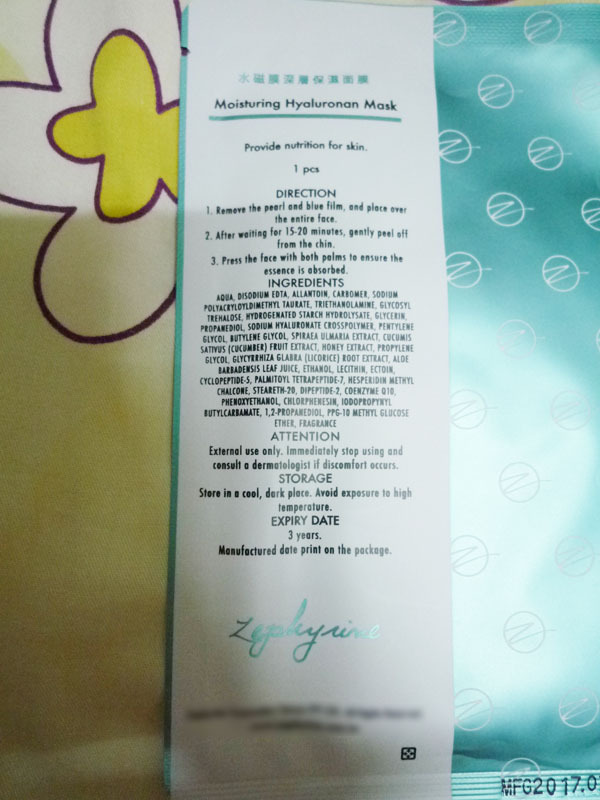 水磁膜深層保濕面膜
Moisturing Hyaluronan Mask
Provide nutrition for skin.
1 pcs
DIRECTION
1. Remove the pearl and blue film, and place over
the entire face.
2. After waiting for 15-20 minutes, gently peel off
from the chin.
3. Press the face with both palms to ensure the
essence is absorbed.
INGREDIENTS
AQUA, DISODIUM EDTA, ALLANTOIN, CARBOMER, SODIUM
POLYACRYLOYLDIMETHYL TAURATE, TRIETHANOLAMINE, GLYCOSYL
TREHALOSE, HYDROGENATED STARCH HYDROLYSATE, GLYCERIN,
PROPANEDIOL, SODIUM HYALURONATE CROSSPOLYMER, PENTYLENE
GLYCOL, BUTYLENE GLYCOL, SPIRAEA ULMARIA EXTRACT, CUCUMIS
SATIVUS (CUCUMBER) FRUIT EXTRACT, HONEY EXTRACT, PROPYLENE
GLYCOL, GLYCYRRHIZA GLABRA (LICORICE) ROOT EXTRACT, ALOE
BARBADENSIS LEAF JUICE, ETHANOL, LECITHIN, ECTOIN,
CYCLOPEPTIDE-5, PALMITOYL TETRAPEPTIDE-7, HESPERIDIN METHYL
CHALCONE, STEARETH-20, DIPEPTIDE-2, COENZYME Q10,
PHENOXYETHANOL, CHLORPHENESIN, IODOPROPYNYL
BUTYLCARBAMATE, 1,2-PROPANEDIOL, PPG-10 METHYL GLUCOSE
ETHER, FRAGRANCE
ATTENTION
External use only. Immediately stop using and
consult a dermatologist if discomfort occurs.
STORAGE
Store in a cool, dark place. Avoid exposure to high
temperature.
EXPIRY DATE
3 years.
Manufactured date print on the package.
Zephyrine
MFG2017.0